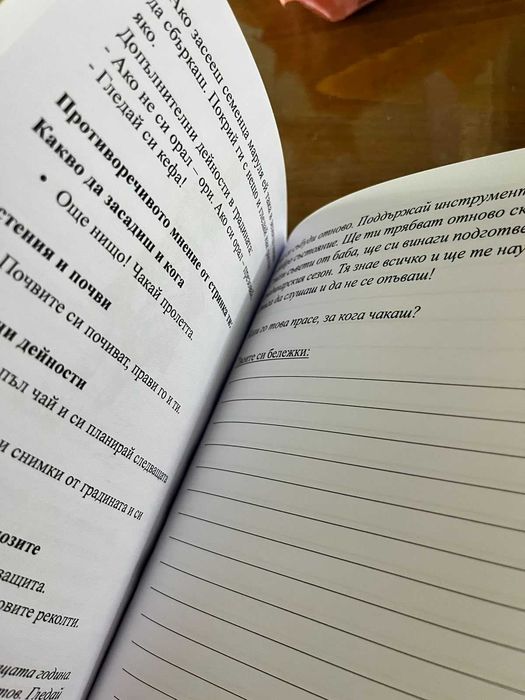 Ако засееш семенца марули ей
да сбъркаш. Покрий ги с нещо и гледай
яко.
Допълнителни дейности в градината:
- Ако не си орал – ори. Ако си орал
- Гледай си кефа!
Противоречивото мнение от стринка ти:
Какво да засадиш и кога
• Още нищо! Чакай пролетта.
стения и почви
Почвите си почиват, прави го и ти.
ни дейности
пъл чай и си планирай следващата
и снимки от градината и си
озите
защита.
овите реколти.
щата година
тов. Гледай
събуди отново. Поддържай инструмент
състояние. Ще ти трябват отново ск
съвети от баба, ще си винаги подготве
сезон. Тя знае всичко и ще те нау
да слушаш и да не се опъваш!
го това прасе, за кога чакаш?
си бележки: